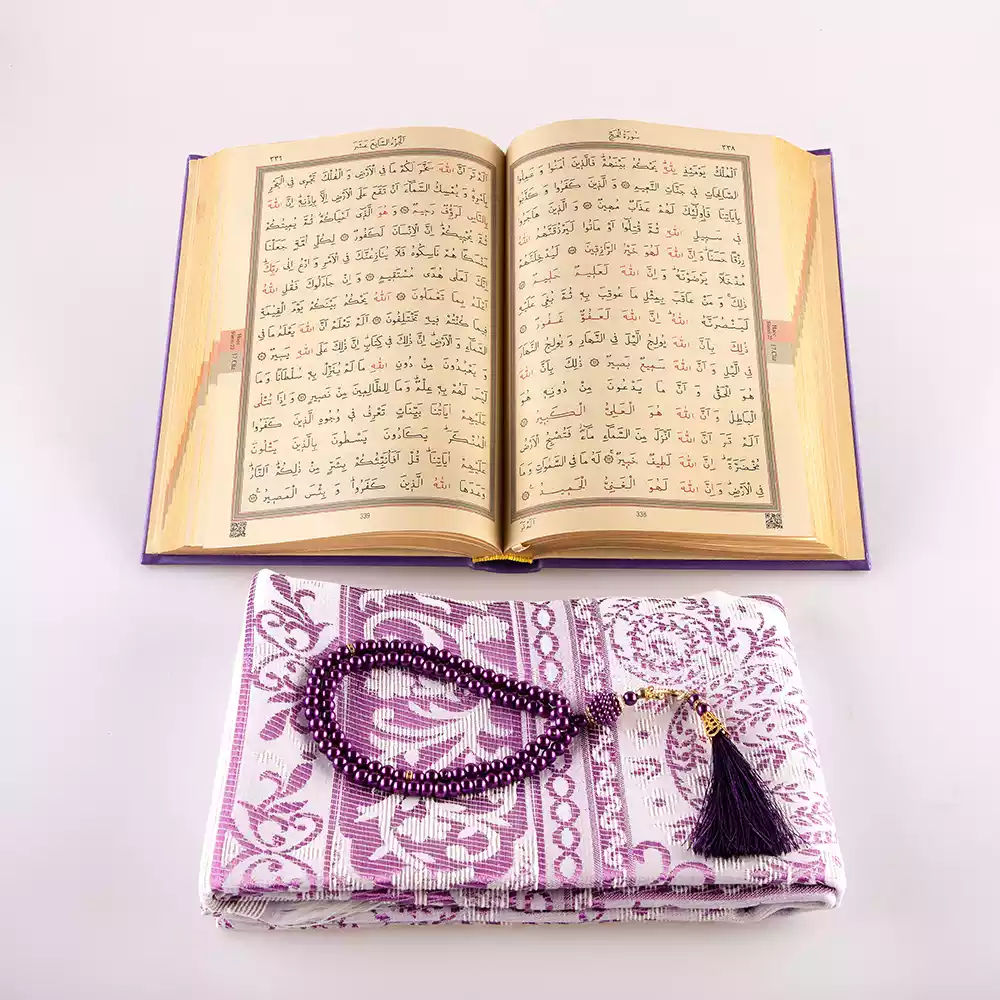 سُورَةُ الْحَجِّ
٣٣٨
اَلْمُلْكُ يَوْمَئِذٍ لِلّٰهِ يَحْكُمُ بَيْنَهُمْ فَالَّذِينَ اٰمَنُوا وَ عَمِلُوا
الصَّالِحَاتِ فِي جَنَّاتِ النَّعِيمِ ۞ وَ الَّذِينَ كَفَرُوا وَ كَذَّبُوا
بِاٰيَاتِنَا فَاُولٰئِكَ لَهُمْ عَذَابٌ مُهِينٌ ۞ وَ الَّذِينَ هَاجَرُوا
فِي سَبِيلِ اللّٰهِ ثُمَّ قُتِلُوا اَوْ مَاتُوا لَيَرْزُقَنَّهُمُ اللّٰهُ
رِزْقًا حَسَنًا وَ اِنَّ اللّٰهَ لَهُوَ خَيْرُ الرَّازِقِينَ ۞ لَيُدْخِلَنَّهُمْ
مُدْخَلًا يَرْضَوْنَهُ وَ اِنَّ اللّٰهَ لَعَلِيمٌ حَلِيمٌ ۞
ذٰلِكَ وَ مَنْ عَاقَبَ بِمِثْلِ مَا عُوقِبَ بِهِ ثُمَّ بُغِيَ عَلَيْهِ
لَيَنْصُرَنَّهُ اللّٰهُ اِنَّ اللّٰهَ لَعَفُوٌّ غَفُورٌ ۞
ذٰلِكَ بِاَنَّ اللّٰهَ يُولِجُ الَّيْلَ فِي النَّهَارِ وَ يُولِجُ النَّهَارَ
فِي الَّيْلِ وَ اَنَّ اللّٰهَ سَمِيعٌ بَصِيرٌ ۞ ذٰلِكَ بِاَنَّ اللّٰهَ
هُوَ الْحَقُّ وَ اَنَّ مَا يَدْعُونَ مِنْ دُونِهِ هُوَ
الْبَاطِلُ وَ اَنَّ اللّٰهَ هُوَ الْعَلِيُّ الْكَبِيرُ ۞
اَلَمْ تَرَ اَنَّ اللّٰهَ اَنْزَلَ مِنَ السَّمَاءِ مَاءً فَتُصْبِحُ الْاَرْضُ
مُخْضَرَّةً اِنَّ اللّٰهَ لَطِيفٌ خَبِيرٌ ۞ لَهُ مَا فِي السَّمٰوَاتِ وَ مَا
فِي الْاَرْضِ وَ اِنَّ اللّٰهَ لَهُوَ الْغَنِيُّ الْحَمِيدُ ۞
338
اَلَمْ تَرَ
اَلْجُزْءُ السَّابِعَ عَشَرَ
٣٣٩
اَلَمْ تَرَ اَنَّ اللّٰهَ سَخَّرَ لَكُمْ مَا فِي الْاَرْضِ وَ الْفُلْكَ تَجْرِي فِي الْبَحْرِ
بِاَمْرِهِ وَ يُمْسِكُ السَّمَاءَ اَنْ تَقَعَ عَلَى الْاَرْضِ اِلَّا بِاِذْنِهِ اِنَّ اللّٰهَ
بِالنَّاسِ لَرَؤُفٌ رَحِيمٌ ۞ وَ هُوَ الَّذِي اَحْيَاكُمْ ثُمَّ يُمِيتُكُمْ
ثُمَّ يُحْيِيكُمْ اِنَّ الْاِنْسَانَ لَكَفُورٌ ۞ لِكُلِّ اُمَّةٍ جَعَلْنَا
مَنْسَكًا هُمْ نَاسِكُوهُ فَلَا يُنَازِعُنَّكَ فِي الْاَمْرِ وَ ادْعُ اِلٰى رَبِّكَ
اِنَّكَ لَعَلٰى هُدًى مُسْتَقِيمٍ ۞ وَ اِنْ جَادَلُوكَ فَقُلِ اللّٰهُ
اَعْلَمُ بِمَا تَعْمَلُونَ ۞ اَللّٰهُ يَحْكُمُ بَيْنَكُمْ يَوْمَ الْقِيٰمَةِ
فِيمَا كُنْتُمْ فِيهِ تَخْتَلِفُونَ ۞ اَلَمْ تَعْلَمْ اَنَّ اللّٰهَ يَعْلَمُ مَا فِي
السَّمَاءِ وَ الْاَرْضِ اِنَّ ذٰلِكَ فِي كِتَابٍ اِنَّ ذٰلِكَ عَلَى اللّٰهِ يَسِيرٌ ۞
وَ يَعْبُدُونَ مِنْ دُونِ اللّٰهِ مَا لَمْ يُنَزِّلْ بِهِ سُلْطَانًا وَ مَا
لَيْسَ لَهُمْ بِهِ عِلْمٌ وَ مَا لِلظَّالِمِينَ مِنْ نَصِيرٍ ۞ وَ اِذَا تُتْلٰى
عَلَيْهِمْ اٰيَاتُنَا بَيِّنَاتٍ تَعْرِفُ فِي وُجُوهِ الَّذِينَ كَفَرُوا
الْمُنْكَرَ يَكَادُونَ يَسْطُونَ بِالَّذِينَ يَتْلُونَ
عَلَيْهِمْ اٰيَاتِنَا قُلْ اَفَاُنَبِّئُكُمْ بِشَرٍّ مِنْ ذٰلِكُمْ اَلنَّارُ
وَعَدَهَا اللّٰهُ الَّذِينَ كَفَرُوا وَ بِئْسَ الْمَصِيرُ ۞
339